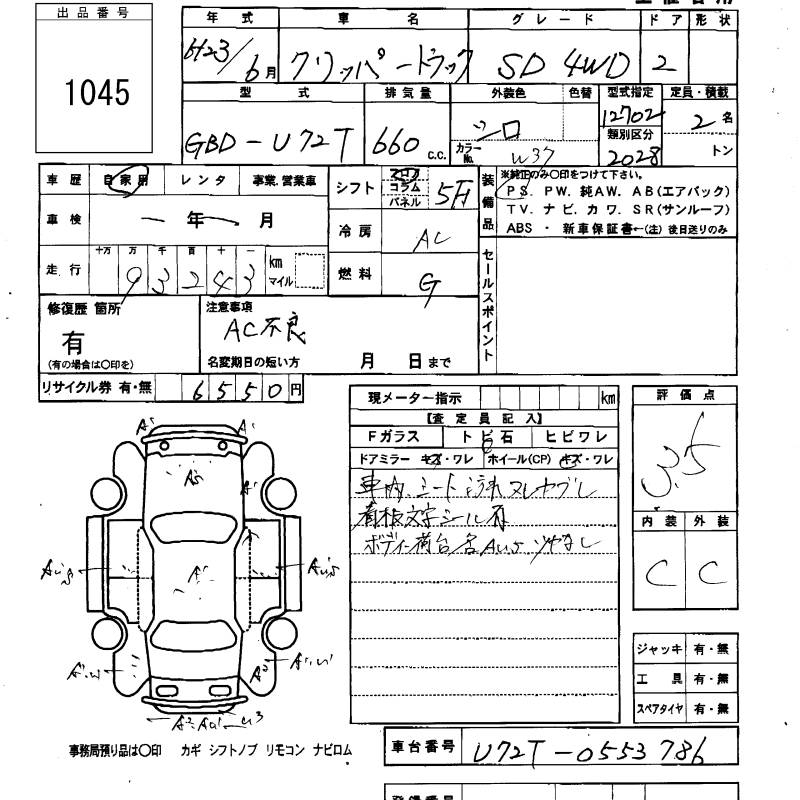 出品番号
1045
年式 車名 グレード ドア 形状
H23/6月 クリッパートラック SD 4WD 2
型式 排気量 外装色 色替 型式指定 定員・積載
GBD-U72T 660 c.c. シロ 12702 2名
類別区分
カラーNo. W37 2028 トン
車歴 自家用 レンタ 事業.営業車
シフト フロア コラム パネル 5F
装備品
※純正のみ〇印をつけて下さい。
PS. PW. 純AW. AB(エアバック)
TV. ナビ. カワ. SR(サンルーフ)
ABS ・ 新車保証書←(注) 後日送りのみ
車検 ー年 月
冷房 AC
走行 十万 万 千 百 十 一
93243 km マイル
燃料 G
セールスポイント
修復歴 箇所
有
(有の場合は〇印を)
注意事項
AC不良
名変期日の短い方 月 日まで
リサイクル券 有・無 6550円
現メーター指示 km
【査定員記入】
Fガラス トビ石 ヒビワレ
ドアミラー キズ・ワレ ホイール(CP) キズ・ワレ
車内 シート汚れ スレ ヤブレ
看板文字シール有
ボディー荷台各AUS ツヤなし
評価点
3.5
内装 外装
C C
ジャッキ 有・無
工具 有・無
スペアタイヤ 有・無
事務局預り品は〇印 カギ シフトノブ リモコン ナビロム
車台番号 U72T-0553786